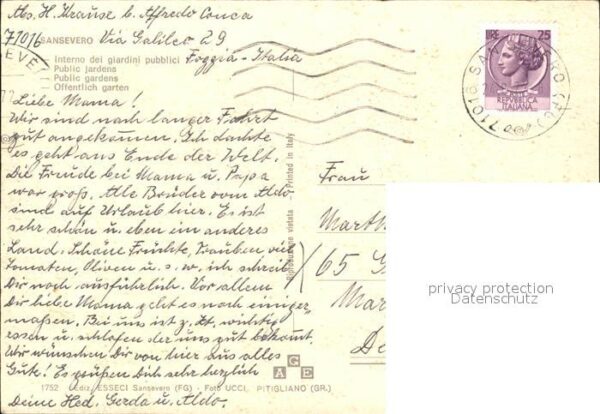 Abs. H. Krause b. Affredo Conca
71016 SANSEVERO Via Galileo 29
Foggia - Italia
Interno dei giardini pubblici
Public jardens
Public gardens
Öffentlich garten
Liebe Mama!
Wir sind nach langer Fahrt
gut angekommen. Ich dachte
es geht ans Ende der Welt.
Die Freude bei Mama u. Papa
war groß. Alle Brüder vom Aldo
sind auf Urlaub hier. Es ist
sehr schön u. eben im anderes
Land. Schöne Früchte, Trauben vie
Tomaten, Oliven u. s. w. ich schreib
Dir noch ausführlich. Vor allem
Dir liebe Mama geht es noch einiger,
maßen. Bei uns ist z. Zt. wichtig
essen u. schlafen der uns gut bekommt.
Wir wünschen Dir von hier aus alles
Gute! Es grüßen Dich sehr herzlich
Deine Hed. Gerda u. Aldo.
1752 Ediz. ESSECI Sansevero (FG) - Foto UCCI, PITIGLIANO (GR.)
Riproduzione vietata Printed in Italy
AGE
LIRE 25
POSTE
REPVBBLICA
ITALIANA
71016 SANSEVERO (FG)
Frau
Marth
65
Mar
De
privacy protection
Datenschutz